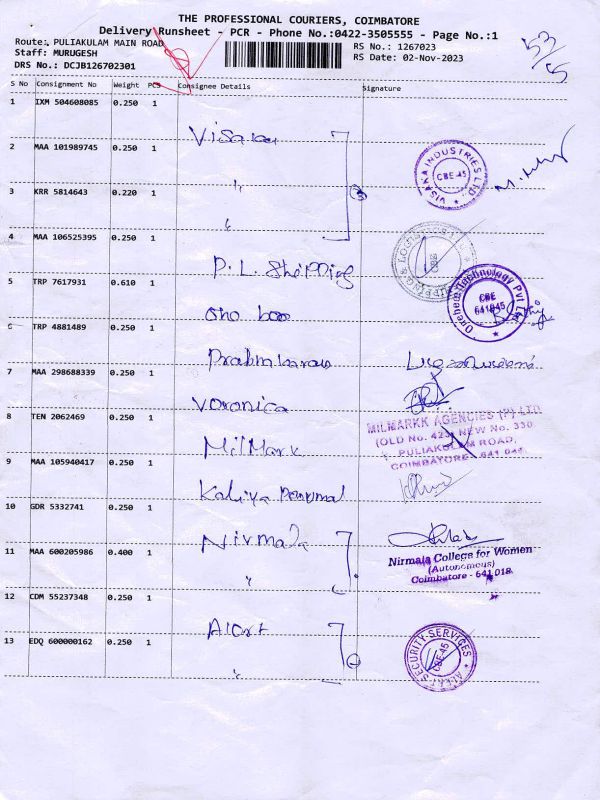 THE PROFESSIONAL COURIERS, COIMBATORE
Delivery Runsheet - PCR - Phone No.:0422-3505555 - Page No.:1
Route: PULIAKULAM MAIN ROAD
Staff: MURUGESH
DRS No.: DCJB126702301
RS No.: 1267023
RS Date: 02-Nov-2023
S No Consignment No Weight PCS Consignee Details Signature
1 IXM 504608085 0.250 1 Visaka
2 MAA 101989745 0.250 1 "
VISAKA INDUSTRIES LTD. CBE-45
3 KRR 5814643 0.220 1 "
4 MAA 106525395 0.250 1 P.L. Shipping
5 TRP 7617931 0.610 1
Technology Pvt Ltd CBE 641045
6 TRP 4881489 0.250 1 Prabhakaran
7 MAA 298688339 0.250 1 Veronica
8 TEN 2062469 0.250 1 MilMark
MILMARKK AGENCIES (P) LTD
(OLD No. 423) NEW No. 330
PULIAKULAM ROAD,
COIMBATORE - 641 045
9 MAA 105940417 0.250 1 Kaliya Perumal
10 GDR 5332741 0.250 1 Nirmala
11 MAA 600205986 0.400 1 "
Nirmala College for Women
(Autonomous)
Coimbatore - 641 018.
12 CDM 55237348 0.250 1 Alert
13 EDQ 600000162 0.250 1 "
ALERT SECURITY SERVICES CBE-45